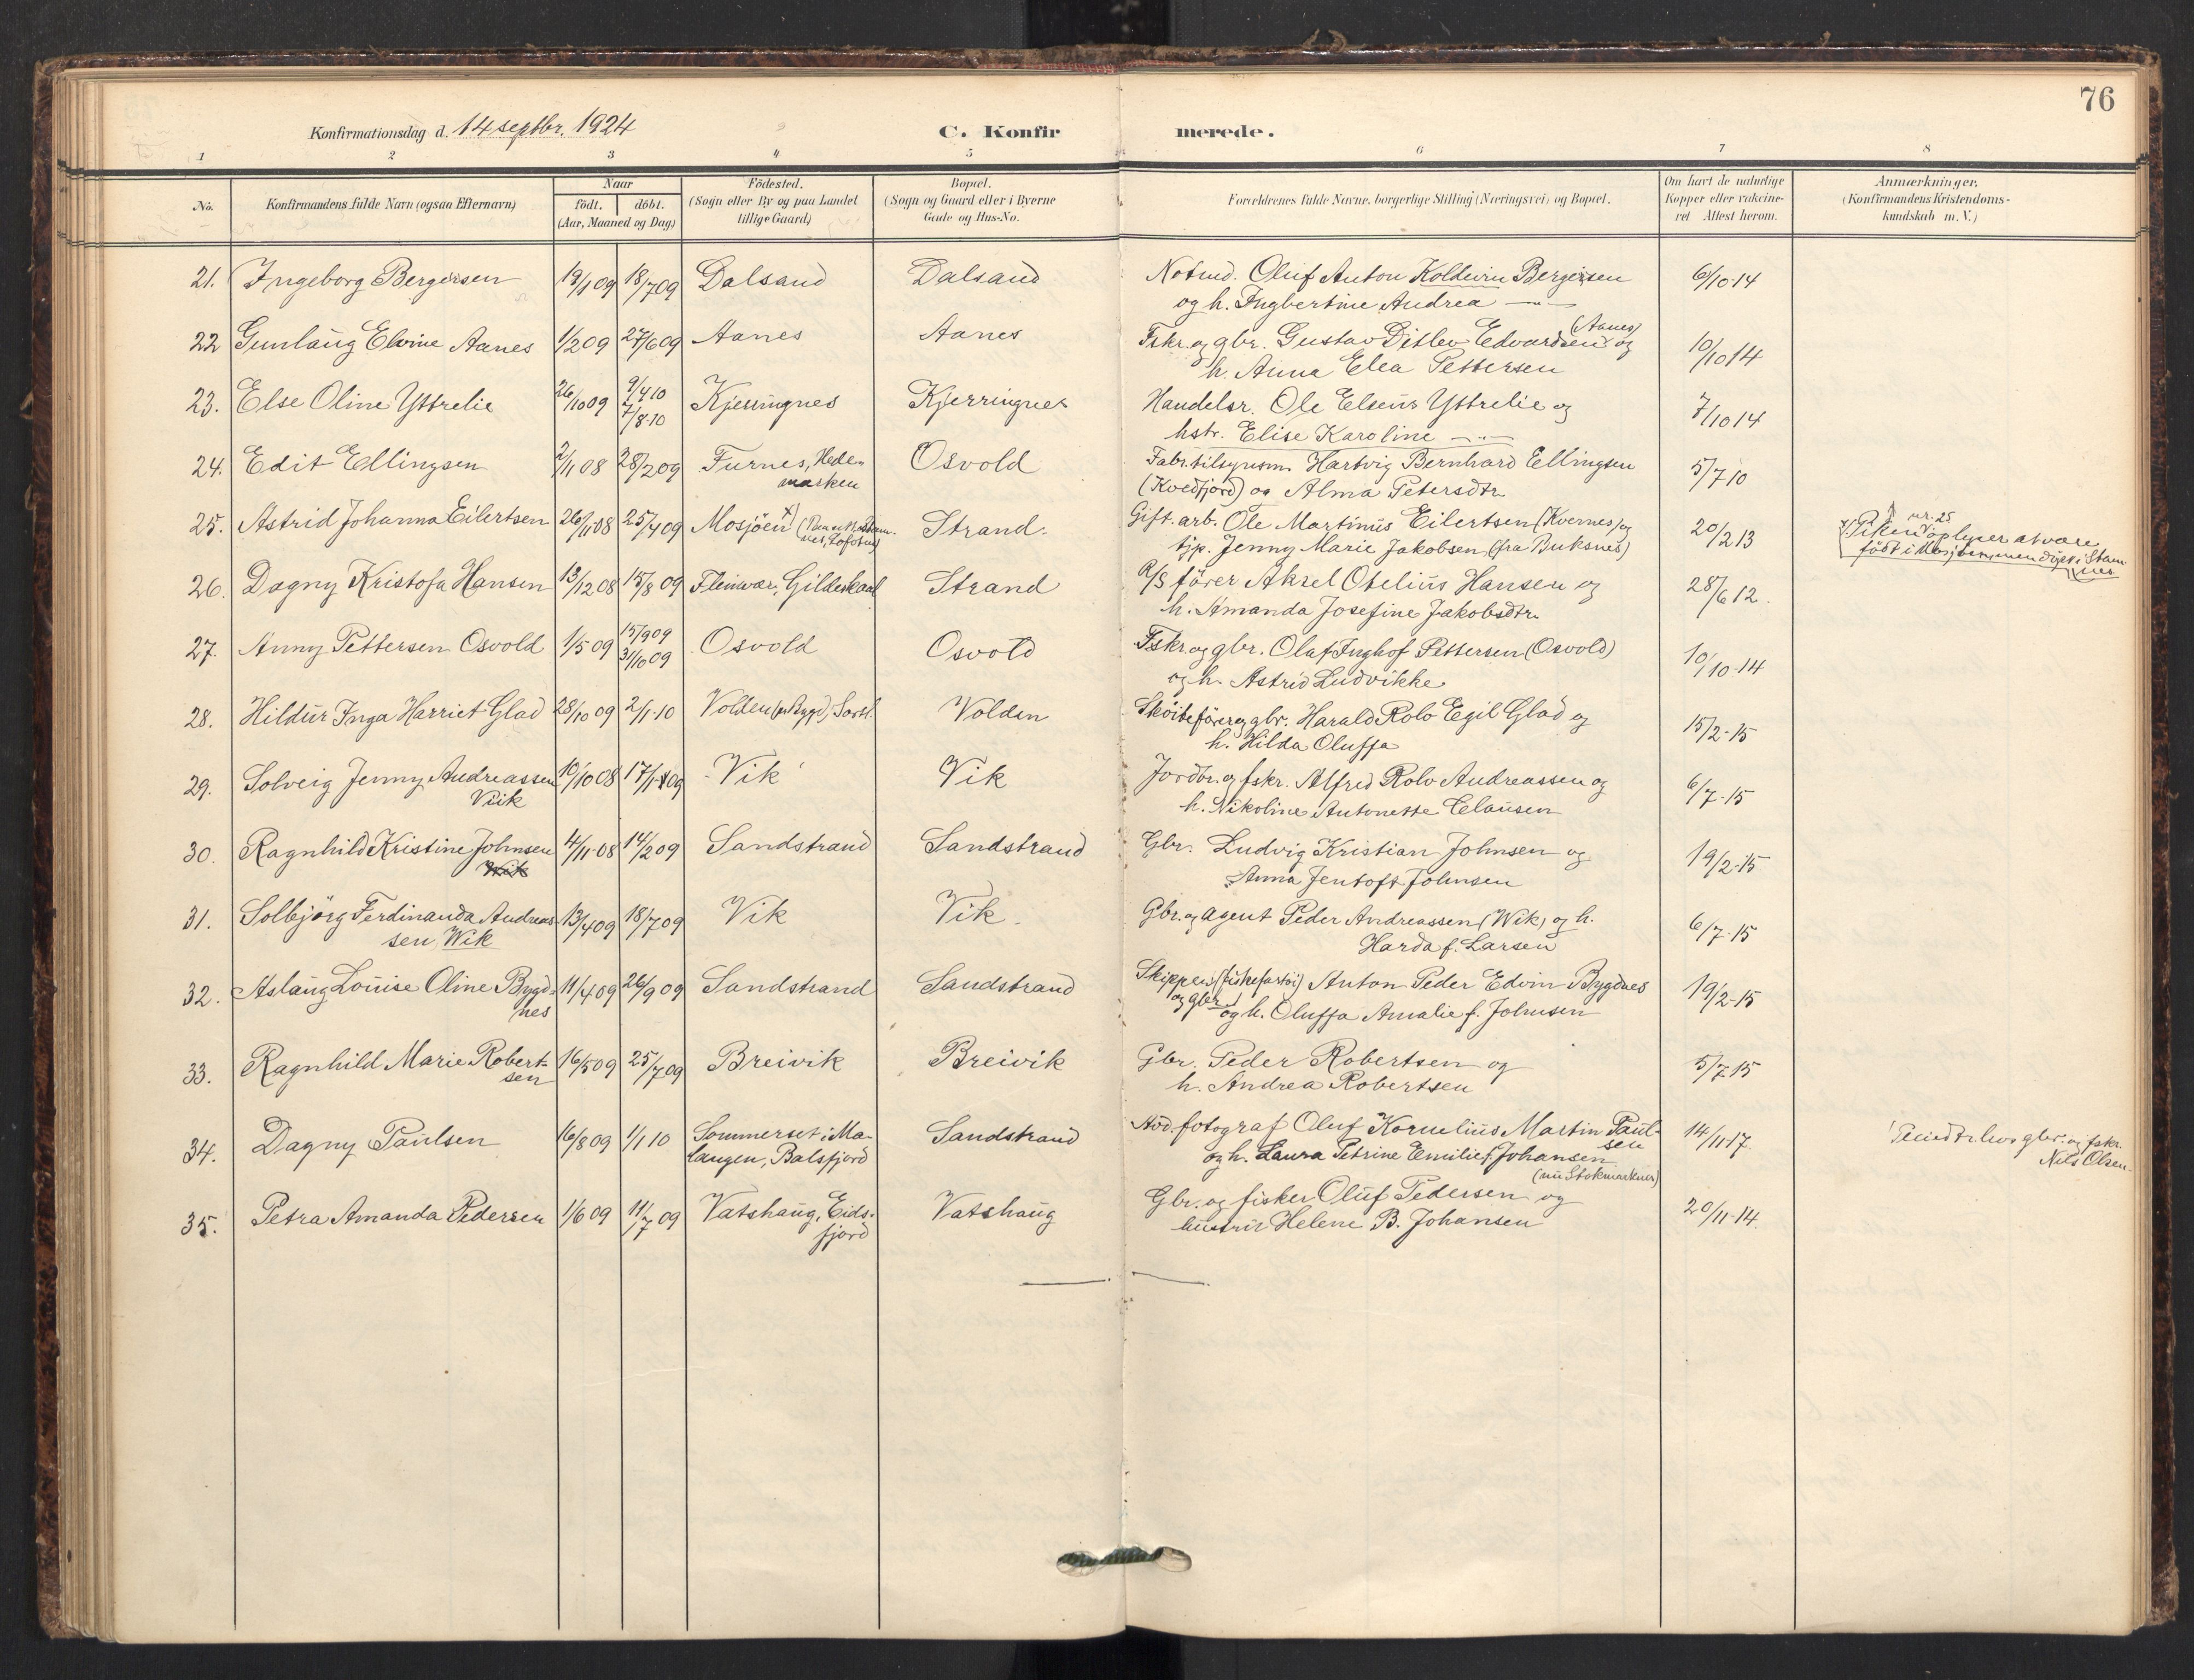 76
Konfirmationsdag d. 14 septbr. 1924 C. Konfir merede.
1 2 3 4 5 6 7 8
No. Konfirmandens fulde Navn (ogsaa Efternavn) Naar födt. döbt. (Aar, Maaned og Dag) Födested. (Sogn eller By og paa Landet tillige Gaard) Bopæl. (Sogn og Gaard eller i Byerne Gade og Hus-No. Forældrenes fulde Navne, borgerlige Stilling (Næringsvei) og Bopæl. Om havt de naturlige Kopper eller vakcineret Attest herom. Anmærkninger. (Konfirmandens Kristendomskundskab m. V.)
21. Ingeborg Bergersen 19/1 09 18/7 09 Dalsand Dalsand Notmd. Oluf Anton Koldevin Bergersen 6/10 14
og h. Ingbertine Andrea — " —
22 Gunlaug Elvine Aanes 1/2 09 27/6 09 Aanes Aanes Fskr. og gbr. Gustav Ditlev Edvardsen (Aanes) og 10/10 14
h. Anna Elea Pettersen
23. Else Oline Yttrelie 26/10 09 9/4 10 7/8-10 Kjerringnes Kjerringnes Handelsr. Ole Elseus Yttrelie og 7/10 14
hstr. Elise Karoline — " —
24. Edit Ellingsen 2/11 08 28/2 09 Furnes, Hede- Osvold Fabr.tilsynsm. Hartvig Bernhard Ellingsen 5/7 10
marken (Kvedfjord) og Alma Petersdtr.
25. Astrid Johanna Eilertsen 26/11 08 25/4 09 Mosjöen x) Strand. Gift. arb. Ole Martinus Eilertsen (Kvernes) og 20/2 13 nr. 25
x) Piken oplyser at være
nes, Lofoten) tjp. Jenny Marie Jakobsen (fra Buksnes) födt i Mosjöen, men döpt i Stam-
nes
26. Dagny Kristofa Hansen 13/12 08 15/8 09 Fleinvær, Gildeskaal Strand D/S förer Aksel Obelius Hansen og 28/6 12.
h. Amanda Josefine Jakobsdtr.
27. Anny Pettersen Osvold 1/5 09 15/9 09 31/10 09 Osvold Osvold Fskr. og gbr. Olaf Inghof Pettersen (Osvold) 10/10-14
og h. Astrid Ludvikke
28. Hildur Inga Harriet Glad 28/10 09 2/1-10 Volden (pr Bygd), Sortl. Volden Sköiteförer og gbr. Harald Rolv Egil Glad og 15/2-15
h. Hilda Oluffa
29. Solveig Jenny Andreassen 10/10 08 17/1 09 Vik Vik Jordbr. og fskr. Alfred Rolv Andreassen og 6/7-15
Viik h. Nikoline Antonette Clausen
30. Ragnhild Kristine Johnsen 4/11-08 14/2 09 Sandstrand Sandstrand Gbr. Ludvig Kristian Johnsen og 19/2-15
Wik Anna Jentoft Johnsen
31. Solbjörg Ferdinanda Andreas- 13/4 09 18/7 09 Vik Vik Gbr. og agent Peder Andreassen (Wik) og h. 6/7-15
sen, Wik Harda f. Larsen
32. Aslaug Louise Oline Bygd- 11/4 09 26/9 09 Sandstrand Sandstrand Skipper (fiskefartöi) Anton Peder Edvin Bygdnes 19/2-15
nes og gbr. og h. Oluffa Amalie f. Johnsen
33. Ragnhild Marie Robert- 16/5 09 25/7 09 Breivik Breivik Gbr. Peder Robertsen og 5/7 15
sen h. Andrea Robertsen
34. Dagny Paulsen 16/8 09 1/1 10 Sommerset i Ma- Sandstrand Avd. fotograf Oluf Kornelius Martin Paul- 14/11 17. Pleiedtr. hos gbr. og fskr.
langen, Balsfjord sen og h. Laura Petrine Emilie f. Johansen Nils Olsen.
(nu Stokmarknes)
35. Petra Amanda Pedersen 1/6 09 11/7 09 Vatshaug, Eids- Vatshaug Gbr. og fisker Oluf Pedersen og 20/11-14.
fjord hustru Helene B. Johansen